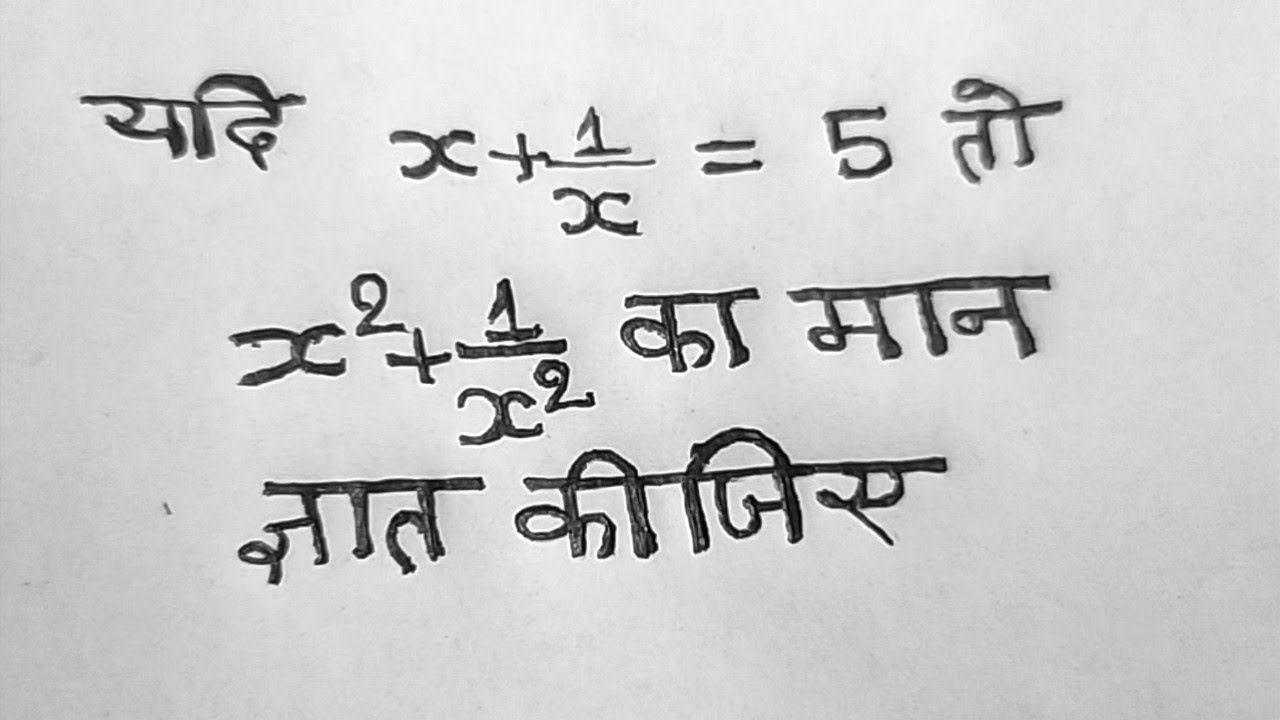 यदि x+1/x = 5 तो
x²+1/x² का मान
ज्ञात कीजिए